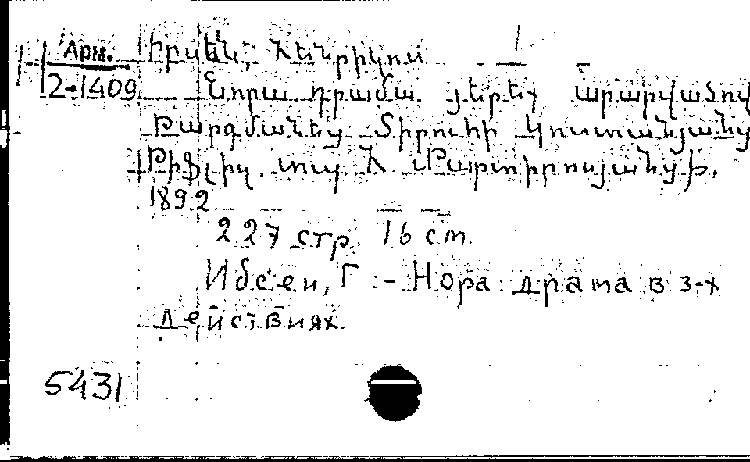 Арм. Իբսեն, Հենրիկոս
2-1409 Նորա դրամա յերեք արարվածով
Թարգմանեց Տիրուհի Կոստանյանց
Թիֆլիզ. տպ Մ. Մարտիրոսյանցի.
1892
227 стр 16 см.
Ибсен, Г. - Нора драма в 3-х
действиях.
5431